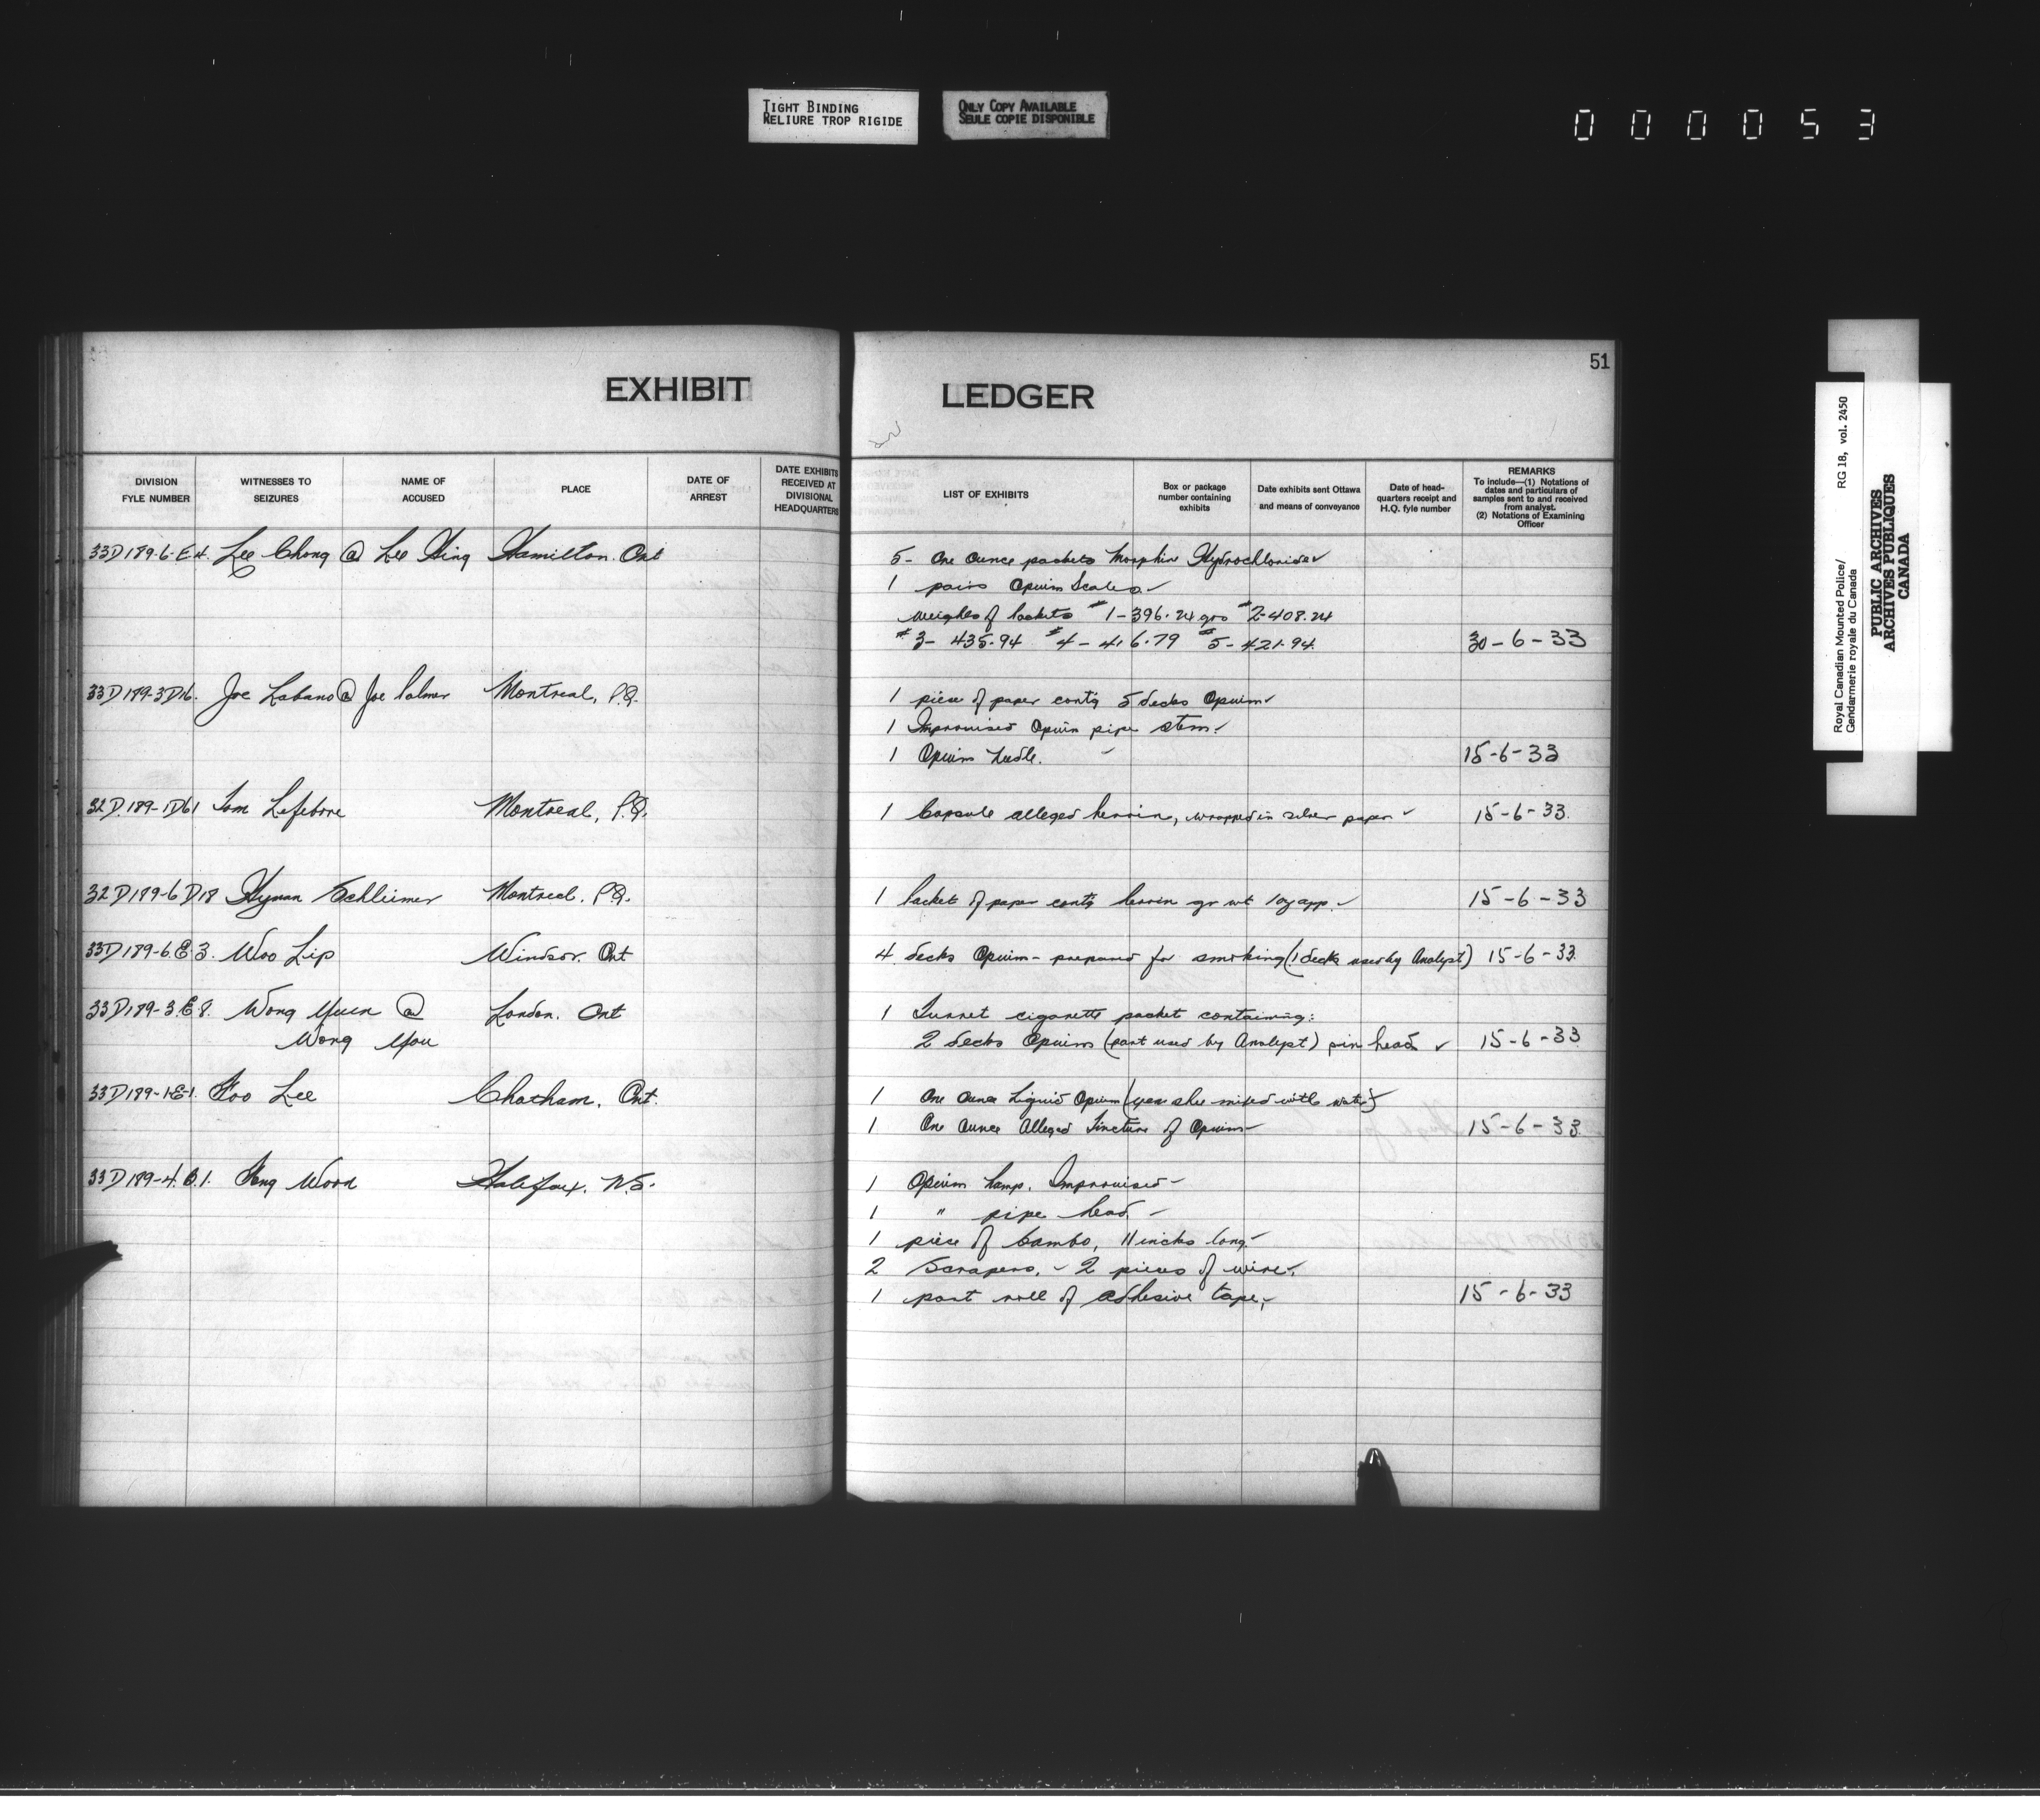 TIGHT BINDING
RELIURE TROP RIGIDE
ONLY COPY AVAILABLE
SEULE COPIE DISPONIBLE
000053
51
EXHIBIT LEDGER
DIVISION FYLE NUMBER
WITNESSES TO SEIZURES
NAME OF ACCUSED
PLACE
DATE OF ARREST
DATE EXHIBITS RECEIVED AT DIVISIONAL HEADQUARTERS
LIST OF EXHIBITS
Box or package number containing exhibits
Date exhibits sent Ottawa and means of conveyance
Date of head-quarters receipt and H.Q. fyle number
REMARKS
To include—(1) Notations of dates and particulars of samples sent to and received from analyst.
(2) Notations of Examining Officer
33D189-6-E4. Lee Chong @ Lee Hing Hamilton. Ont 5- One Ounce packets Morphine Hydrochloride
1 pairs Opium Scales
Weights of Packets #1-396.24 grs #2-408.24
#3- 435.94 #4- 416.79 #5- 421.94. 30-6-33
33D189-3D16. Joe Labano @ Joe Palmer Montreal, P.Q. 1 piece of paper contg 5 decks Opium
1 Improvised Opium pipe stem.
1 Opium Needle. 15-6-33
32D.189-1D61 Tom Lefebvre Montreal, P.Q. 1 Capsule alleged heroin, wrapped in silver paper 15-6-33.
32D189-6D18 Hyman Schleimer Montreal. P.Q. 1 Packet of paper contg heroin gr wt 1 oz app. 15-6-33
33D189-6.E.3. Woo Lip Windsor. Ont 4 decks Opium- prepared for smoking (1 deck used by Analyst) 15-6-33.
33D189-3.E.8. Wong Yuen @ London. Ont 1 Turret cigarette packet containing:
Wong You 2 decks Opium (part used by Analyst) pin head 15-6-33
33D189-1E-1. Foo Lee Chatham, Ont. 1 One Ounce Liquid Opium (yen shee mixed with water)
1 One Ounce Alleged Tincture of Opium 15-6-33.
33D189-4. 1. Wood Halifax. N.S. 1 Opium Lamp. Improvised
1 " pipe head.
1 piece of bambo, 11 inches long.
2 Scrapers, - 2 pieces of wire.
1 part roll of adhesive tape, 15-6-33
Royal Canadian Mounted Police/ RG 18, vol. 2450
Gendarmerie royale du Canada
PUBLIC ARCHIVES
ARCHIVES PUBLIQUES
CANADA